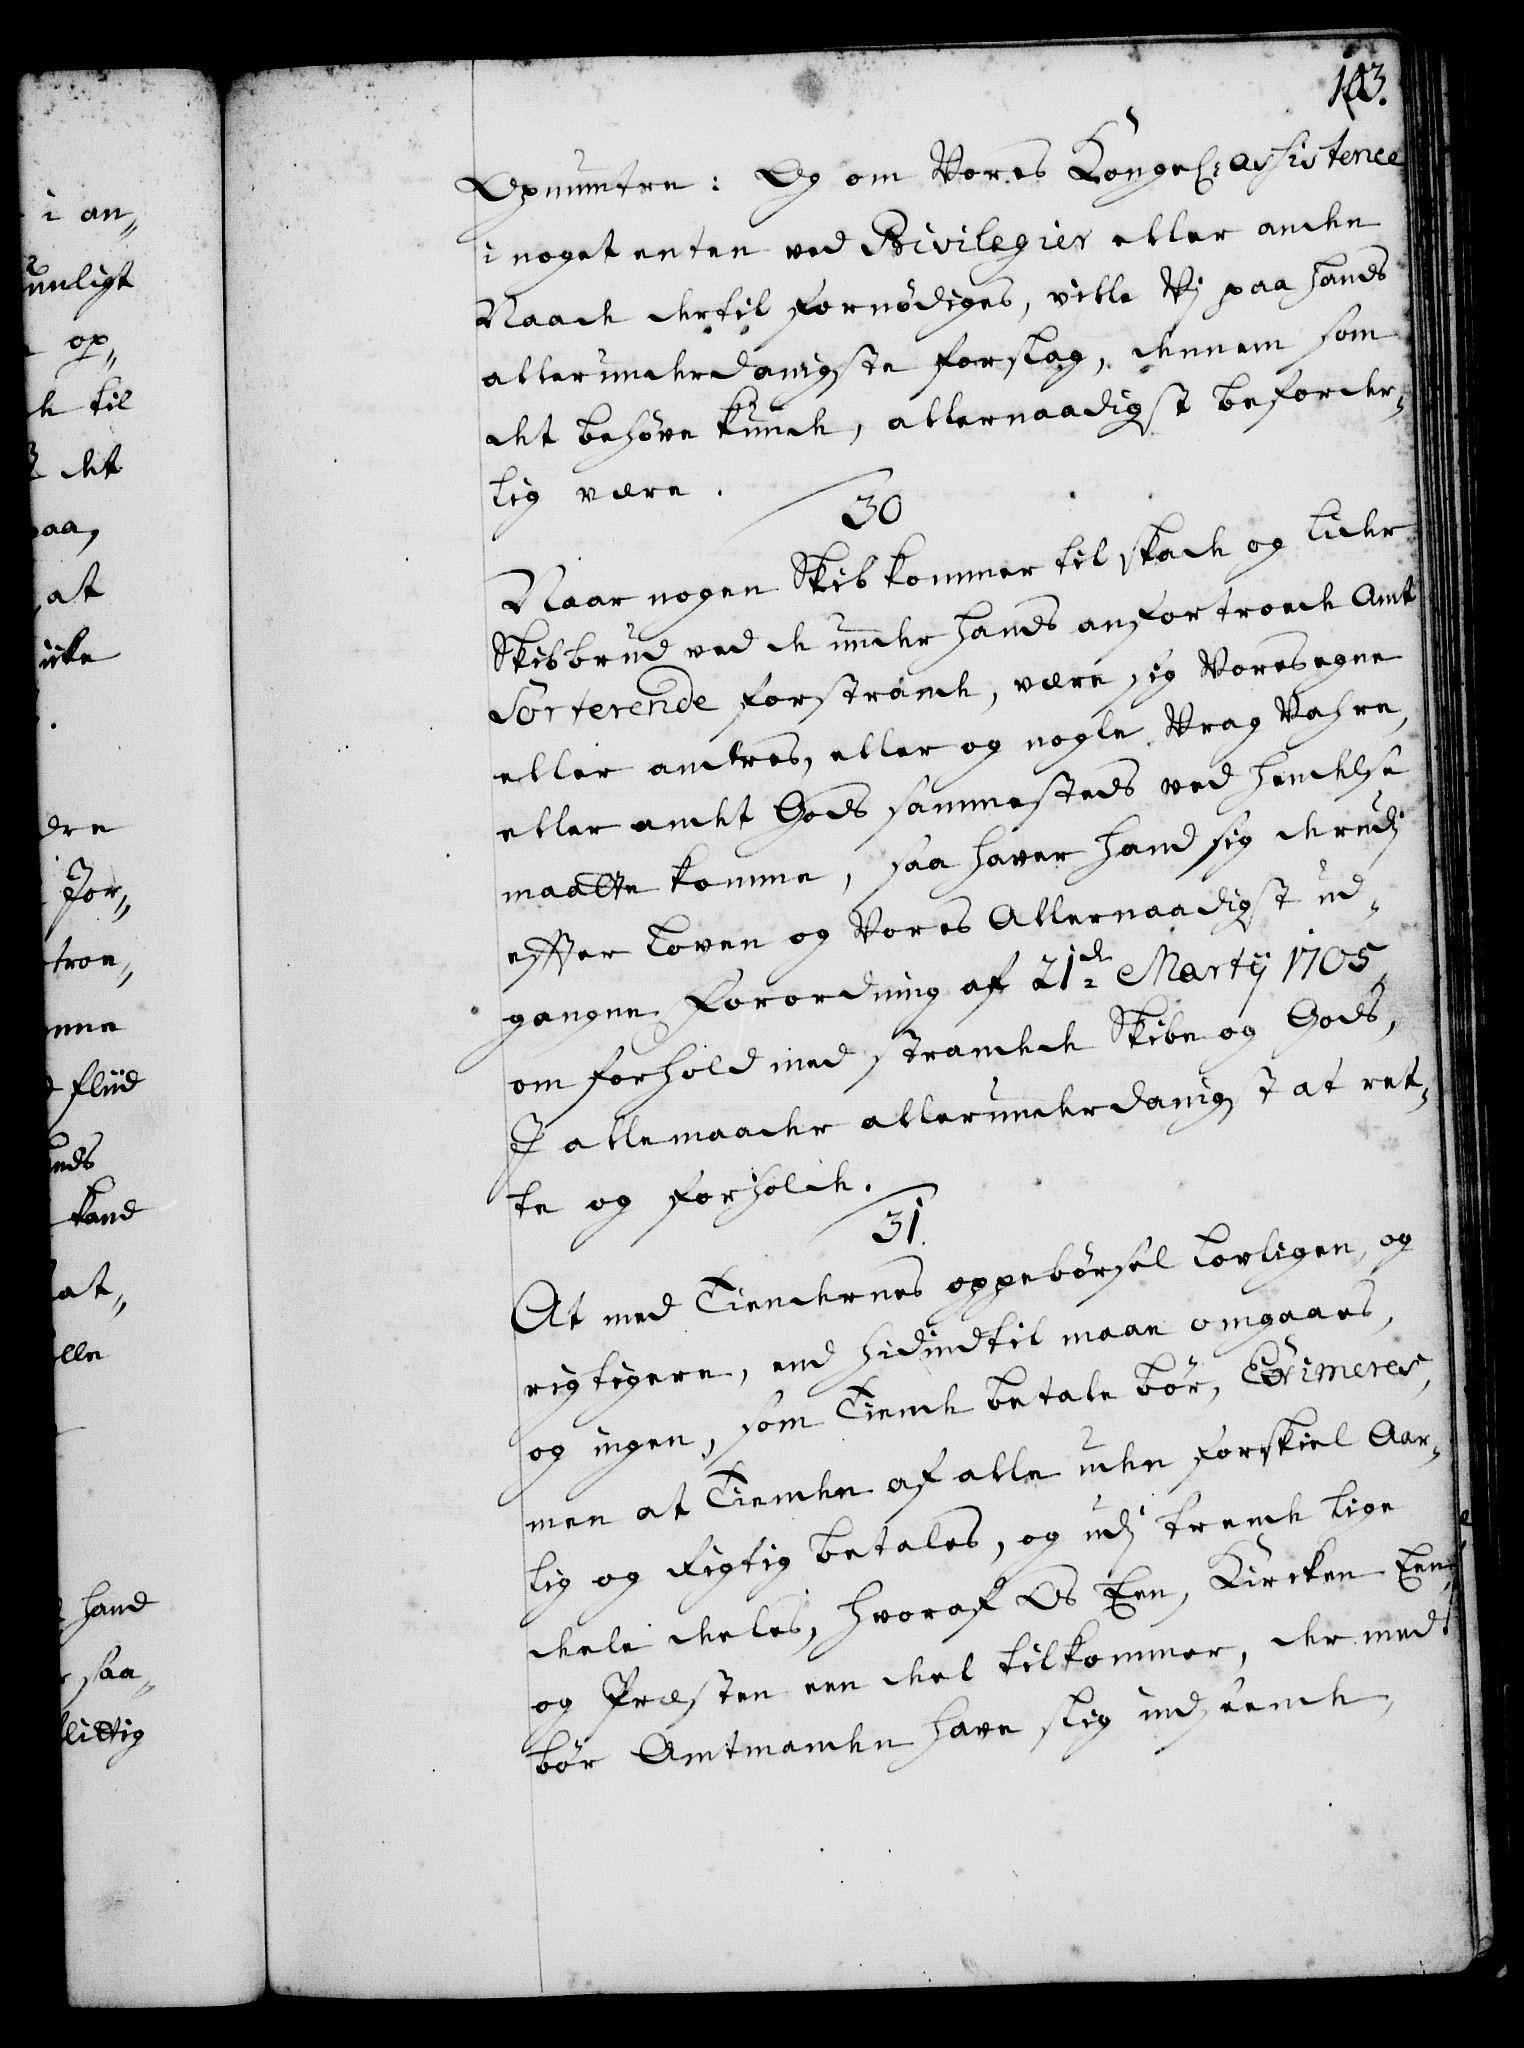 103.
Opmuntre: Og om Vores Kongel: assistence
i noget enten ved Privilegier eller anden
Naade dertil fornödiges, ville Vj paa hands
allerunderdanigste forslag, dennem som
det behöve kunde, allernaadigst beforder„
lig være.
30
Naar nogen Skib kommer til skade og lider
Skibbrud ved de under hands anfortroede Amt
Sorterende forstrande, være sig Vores egne
eller andres, eller og nogle Vrag Vahre,
eller andet Gods sammesteds ved hendelse
maatte komme, saa haver hand sig derudj
efter Loven og Vores Allernaadigst ud„
gangne Forordning af 21de Martij 1705,
om forhold med strandede Skibe og Gods,
I alle maader allerunderdanigst at ret„
te og forholde.
31.
At med Tiendernes oppebörsel lovligen, og
rigtigere, end hidindtil maae omgaaes,
og ingen, som Tiende betale bör, Eximeres,
men at Tienden af alle uden forskiel Aar„
lig og rigtig betales, og udj trende lige
dele deles, hvoraf Os Een, Kircken Een,
og Præsten een deel tilkommer, der med
bör Amtmanden have flig indseende,
i an„
op„
til
det
paa,
at
icke
For„
troe„
fliid
kand
at„
hand
saa„